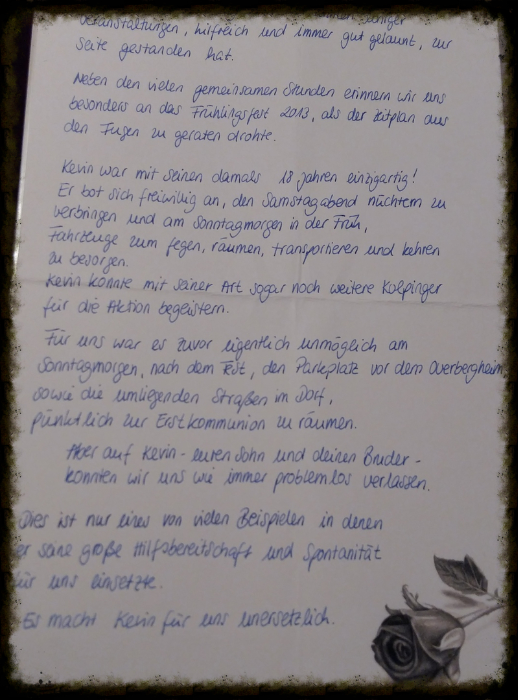 Veranstaltungen, hilfreich und immer gut gelaunt, zur
Seite gestanden hat.
Neben den vielen gemeinsamen Stunden erinnern wir uns
besonders an das Frühlingsfest 2013, als der Zeitplan aus
den Fugen zu geraten drohte.
Kevin war mit seinen damals 18 Jahren einzigartig!
Er bot sich freiwillig an, den Samstagabend nüchtern zu
verbringen und am Sonntagmorgen in der Früh,
Fahrzeuge zum fegen, räumen, transportieren und kehren
zu besorgen.
Kevin konnte mit seiner Art sogar noch weitere Kolpinger
für die Aktion begeistern.
Für uns war es zuvor eigentlich unmöglich am
Sonntagmorgen, nach dem Fest, den Parkplatz vor dem Overbergheim
sowie die umliegenden Straßen im Dorf,
pünktlich zur Erstkommunion zu räumen.
Aber auf Kevin - euren Sohn und deinen Bruder -
konnten wir uns wie immer problemlos verlassen.
Dies ist nur eines von vielen Beispielen in denen
er seine große Hilfsbereitschaft und Spontanität
für uns einsetzte.
Es macht Kevin für uns unersetzlich.